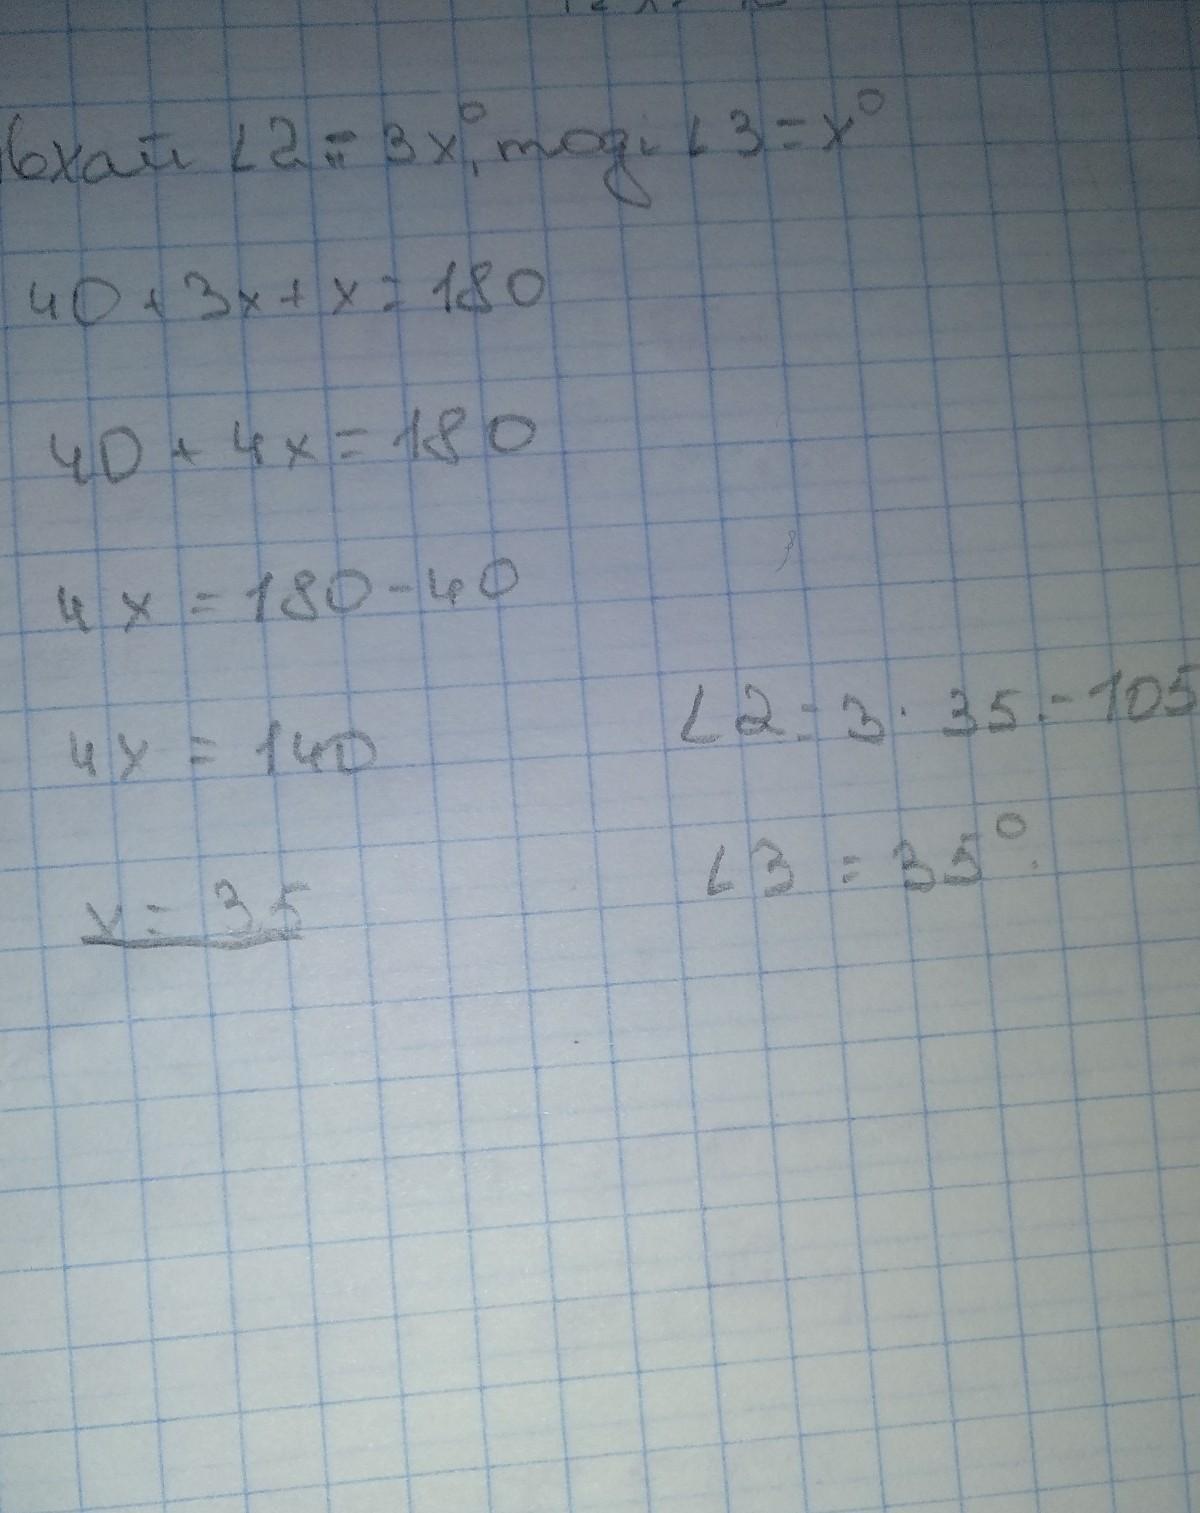 Нехай ∠2 = 3x°, тоді ∠3 = x°
40 + 3x + x = 180
40 + 4x = 180
4x = 180 - 40
4x = 140
x = 35
∠2 = 3 · 35 = 105
∠3 = 35°.